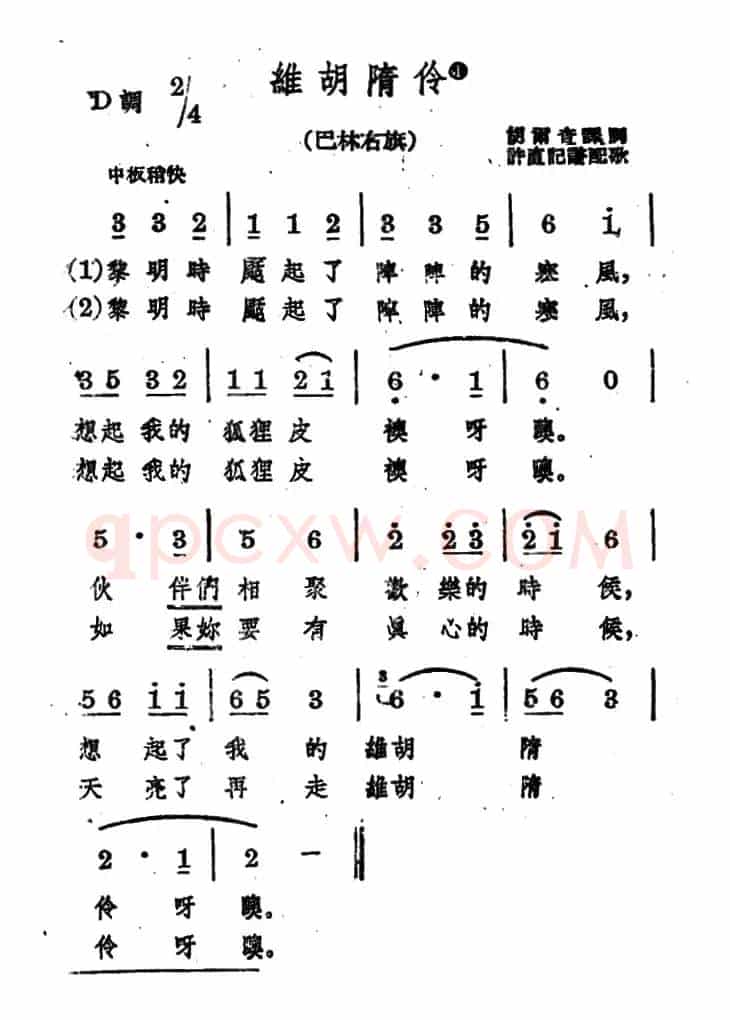 維胡隋伶①
D調 2/4
(巴林右旗)
胡爾查譯詞
許直記譜配歌
中板稍快
3 3 2 | 1 1 2 | 3 3 5 | 6 i |
(1)黎明時颳起了陣陣的寒風,
(2)黎明時颳起了陣陣的寒風,
35 32 | 11 21 | 6 · 1 | 6 0 |
想起我的狐狸皮襖呀噢。
想起我的狐狸皮襖呀噢。
qpcxw.COM
5 · 3 | 5 6 | 2 23 | 21 6 |
伙伴們相聚歡樂的時候,
如果妳要有眞心的時候,
56 ii | 65 3 | 3 6 · i | 56 3 |
想起了我的維胡隋
天亮了再走維胡隋
2 · 1 | 2 — ‖
伶呀噢。
伶呀噢。